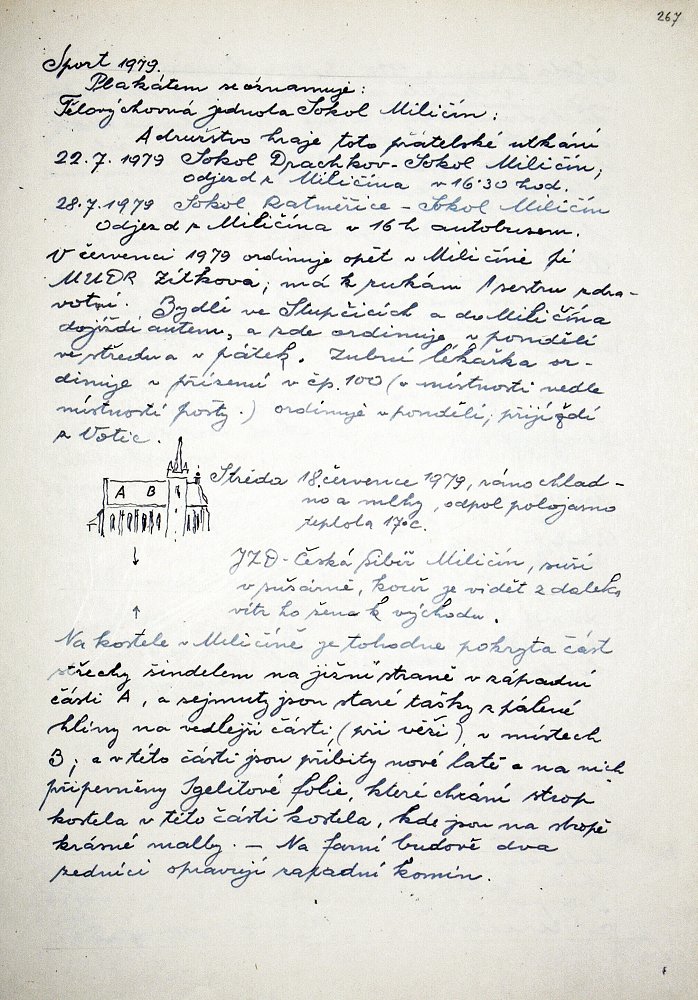 267
Sport 1979.
Plakátem se oznamuje:
Tělovýchovná jednota Sokol Miličín:
A družstvo hraje toto přátelské utkání
22.7.1979 Sokol Drachkov - Sokol Miličín;
odjezd z Miličína v 16.30 hod.
28.7.1979 Sokol Ratměřice - Sokol Miličín
odjezd z Miličína v 16 h autobusem.
V červenci 1979 ordinuje opět v Miličíně
MUDR Zítková; má k rukám 1 sestru zdra-
votní. Bydlí ve Stupčicích a do Miličína
dojíždí autem, a zde ordinuje v pondělí
ve středu a v pátek. Zubní lékařka or-
dinuje v přízemí v čp. 100 (v místnosti vedle
místnosti pošty.) ordinuje v pondělí; přijíždí
z Votic.
Středa 18. července 1979, ráno chlad-
no a mlhy, odpol polojasno
teplota 17°C.
A B
JZD - Česká Sibiř Miličín, suší
v sušárně, kouř je vidět z daleka,
vítr ho žene k východu.
Na kostele v Miličíně je tohodne pokryta část
střechy šindelem na jižní straně v západní
části A, a sejmuty jsou staré tašky z pálené
hlíny na vedlejší části (při věži), v místech
B; a v této části jsou přibity nové latě a na nich
připevněny Igelitové folie, které chrání strop
kostela v této části kostela, kde jsou na stropě
krásné malby. - Na farní budově dva
zedníci opravují zapadní komín.